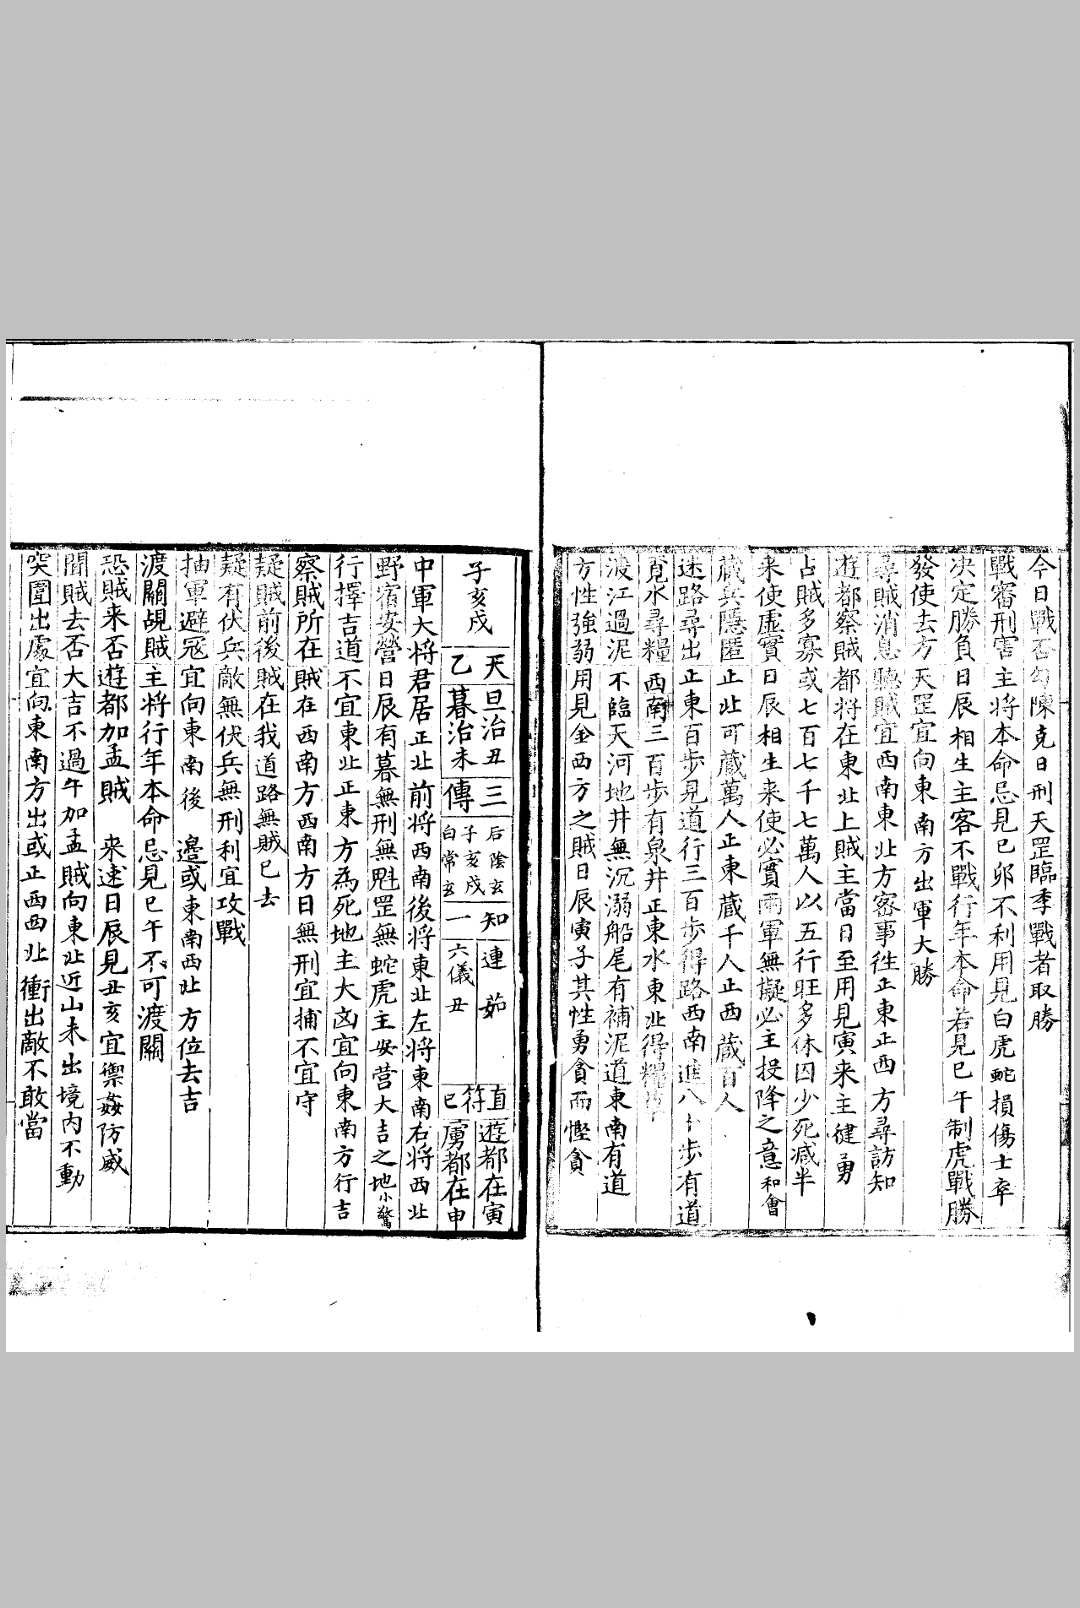 今日戰否勾陳克日刑天罡臨季戰者取勝
戰審刑害主將本命忌見巳卯不利用見白虎蛇損傷士卒
决定勝負日辰相生主客不戰行年本命若見巳午制虎戰勝
發使去方天罡宜向東南方出軍大勝
尋賊消息聽賊宜西南東北方審事徃正東正西方尋訪知
遊都察賊都將在東北上賊主當日至用見寅来主健勇
占賊多寡或七百七千七萬人以五行旺多休囚少死減半
来使虛實日辰相生来使必實兩軍無擬必主投降之意和會
藏兵隱匿正北可藏萬人正東藏千人正西藏百人
迷路尋出正東百步見道行三百步得路西南進八十步有道
覓水尋糧西南三百步有泉井正東水東北得糧
渡江過泥不臨天河地井無沉溺船尾有補泥道東南有道
方性強弱用見金西方之賊日辰寅子其性勇貪而慳貪
子亥戌
天旦治丑三
乙暮治未傳
后陰玄
子亥戌
白常玄
知一
連茹
六儀丑
直符巳
遊都在寅
虜都在申
中軍大将君居正北前将西南後将東北左将東南右将西北
野宿安營日辰有暮無刑無魁罡無蛇虎主安营大吉之地小驚
行擇吉道不宜東北正東方為死地主大凶宜向東南方行吉
察賊所在賊在西南方西南方日無刑宜捕不宜守
疑賊前後賊在我道路無賊已去
疑有伏兵敵無伏兵無刑利宜攻戰
抽軍避冦宜向東南後邉或東南西北方位去吉
渡關覘賊主將行年本命忌見巳午不可渡關
恐賊来否遊都加孟賊来速日辰見丑亥宜禦姦防威
聞賊去否大吉不過午加孟賊向東北近山未出境内不動
突圍出處宜向東南方出或正西西北衝出敵不敢當